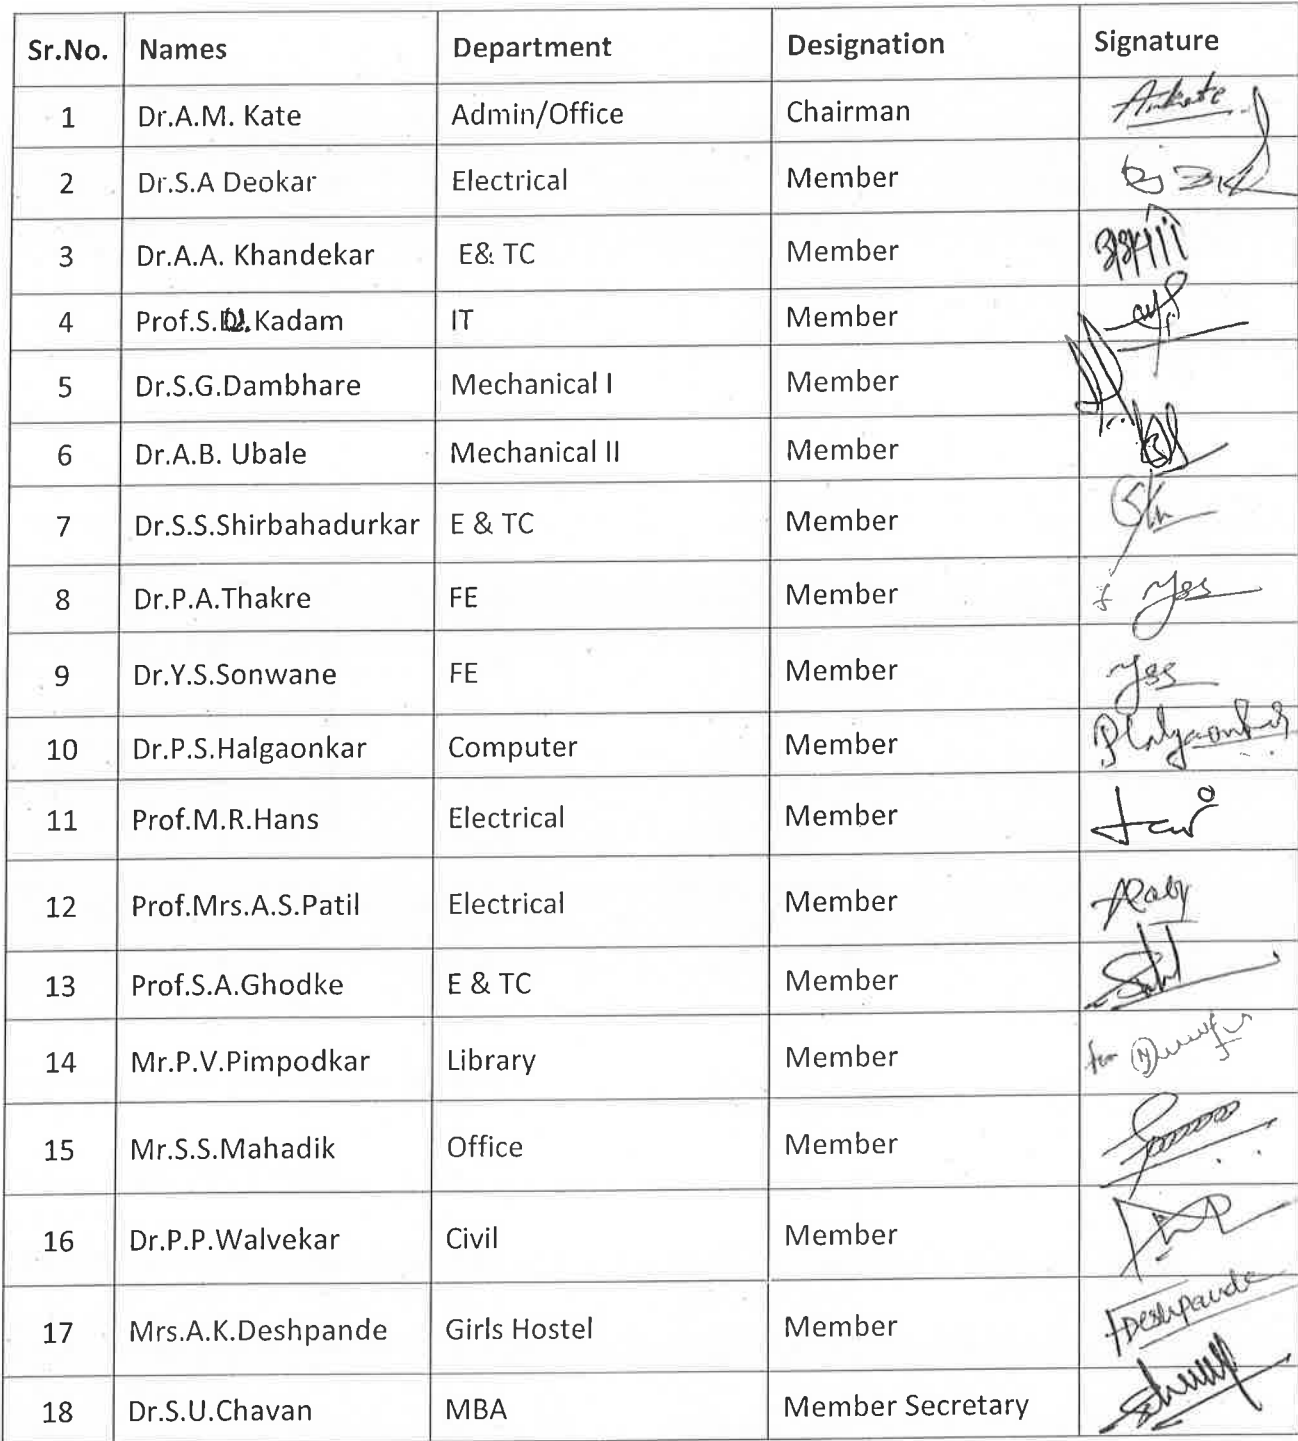 Sr.No. Names Department Designation Signature
1 Dr.A.M. Kate Admin/Office Chairman
2 Dr.S.A Deokar Electrical Member
3 Dr.A.A. Khandekar E& TC Member
4 Prof.S. Kadam IT Member
5 Dr.S.G.Dambhare Mechanical I Member
6 Dr.A.B. Ubale Mechanical II Member
7 Dr.S.S.Shirbahadurkar E & TC Member
8 Dr.P.A.Thakre FE Member
9 Dr.Y.S.Sonwane FE Member
10 Dr.P.S.Halgaonkar Computer Member
11 Prof.M.R.Hans Electrical Member
12 Prof.Mrs.A.S.Patil Electrical Member
13 Prof.S.A.Ghodke E & TC Member
14 Mr.P.V.Pimpodkar Library Member
15 Mr.S.S.Mahadik Office Member
16 Dr.P.P.Walvekar Civil Member
17 Mrs.A.K.Deshpande Girls Hostel Member
18 Dr.S.U.Chavan MBA Member Secretary